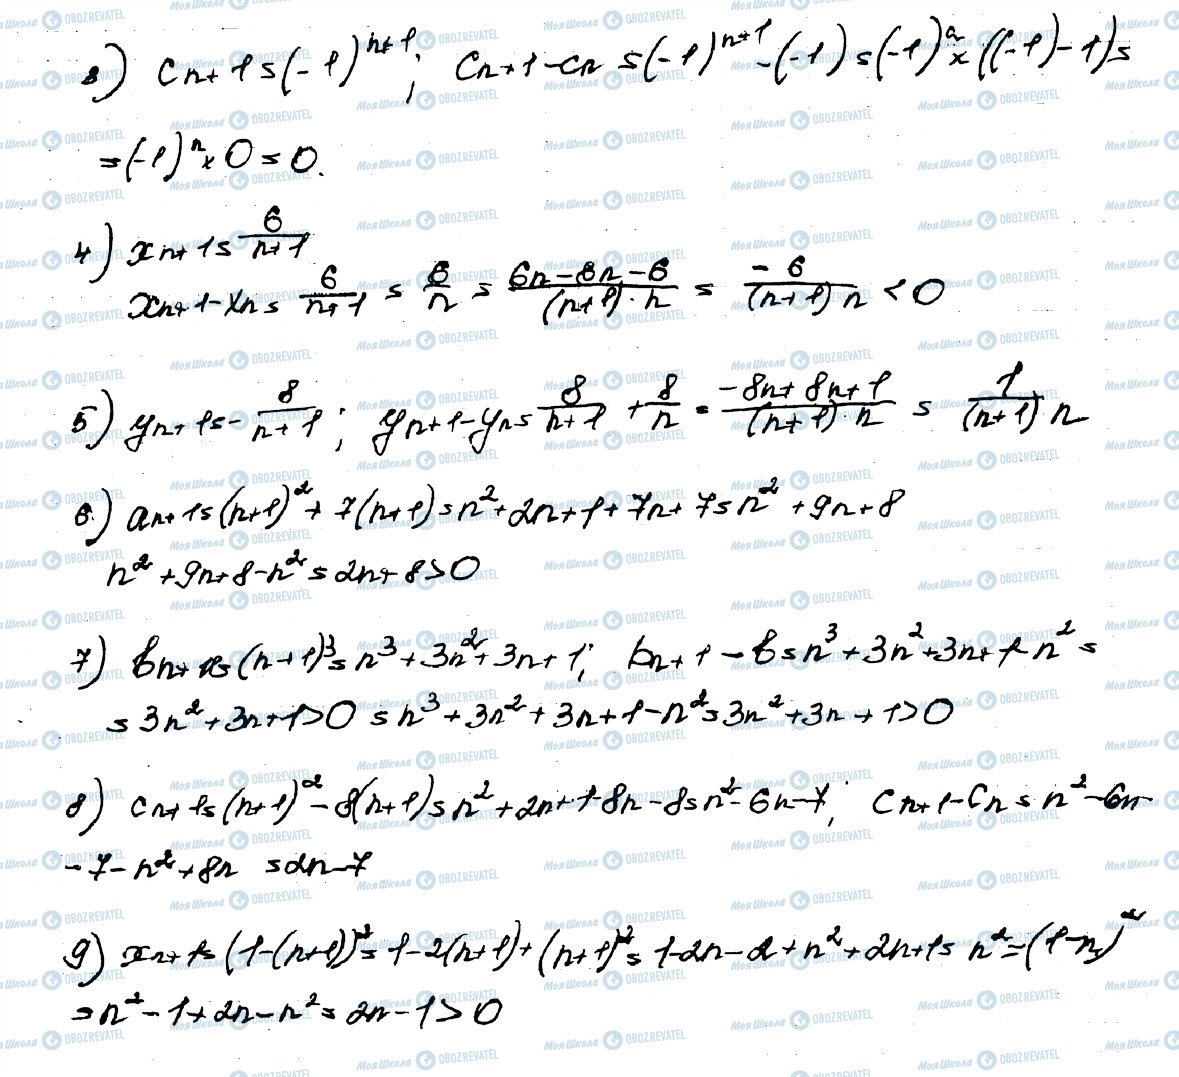 3) Cn+1=(-1)^{n+1}; Cn+1-Cn=(-1)^{n+1}-(-1)=(-1)^n×((-1)-1)=
=(-1)^n×0=0.
4) xn+1=\frac{6}{n+1}
xn+1-xn=\frac{6}{n+1}=\frac{6}{n}=\frac{6n-6n-6}{(n+1)·n}=\frac{-6}{(n+1)n}<0
5) yn+1=-\frac{8}{n+1}; yn+1-yn=\frac{8}{n+1}+\frac{8}{n}=\frac{-8n+8n+1}{(n+1)·n}=\frac{1}{(n+1)n}
6) an+1=(n+1)^2+7(n+1)=n^2+2n+1+7n+7=n^2+9n+8
n^2+9n+8-n^2=2n+8>0
7) bn+1=(n+1)^3=n^3+3n^2+3n+1; bn+1-b=n^3+3n^2+3n+1-n^2=
=3n^2+3n+1>0=n^3+3n^2+3n+1-n^2=3n^2+3n+1>0
8) Cn+1=(n+1)^2-8(n+1)=n^2+2n+1-8n-8=n^2-6n-7; Cn+1-Cn=n^2-6n-
-7-n^2+8n=2n-7
9) xn+1=(1-(n+1))^2=1-2(n+1)+(n+1)^2=1-2n-2+n^2+2n+1=n^2=(1-n)^2
=n^2-1+2n-n^2=2n-1>0